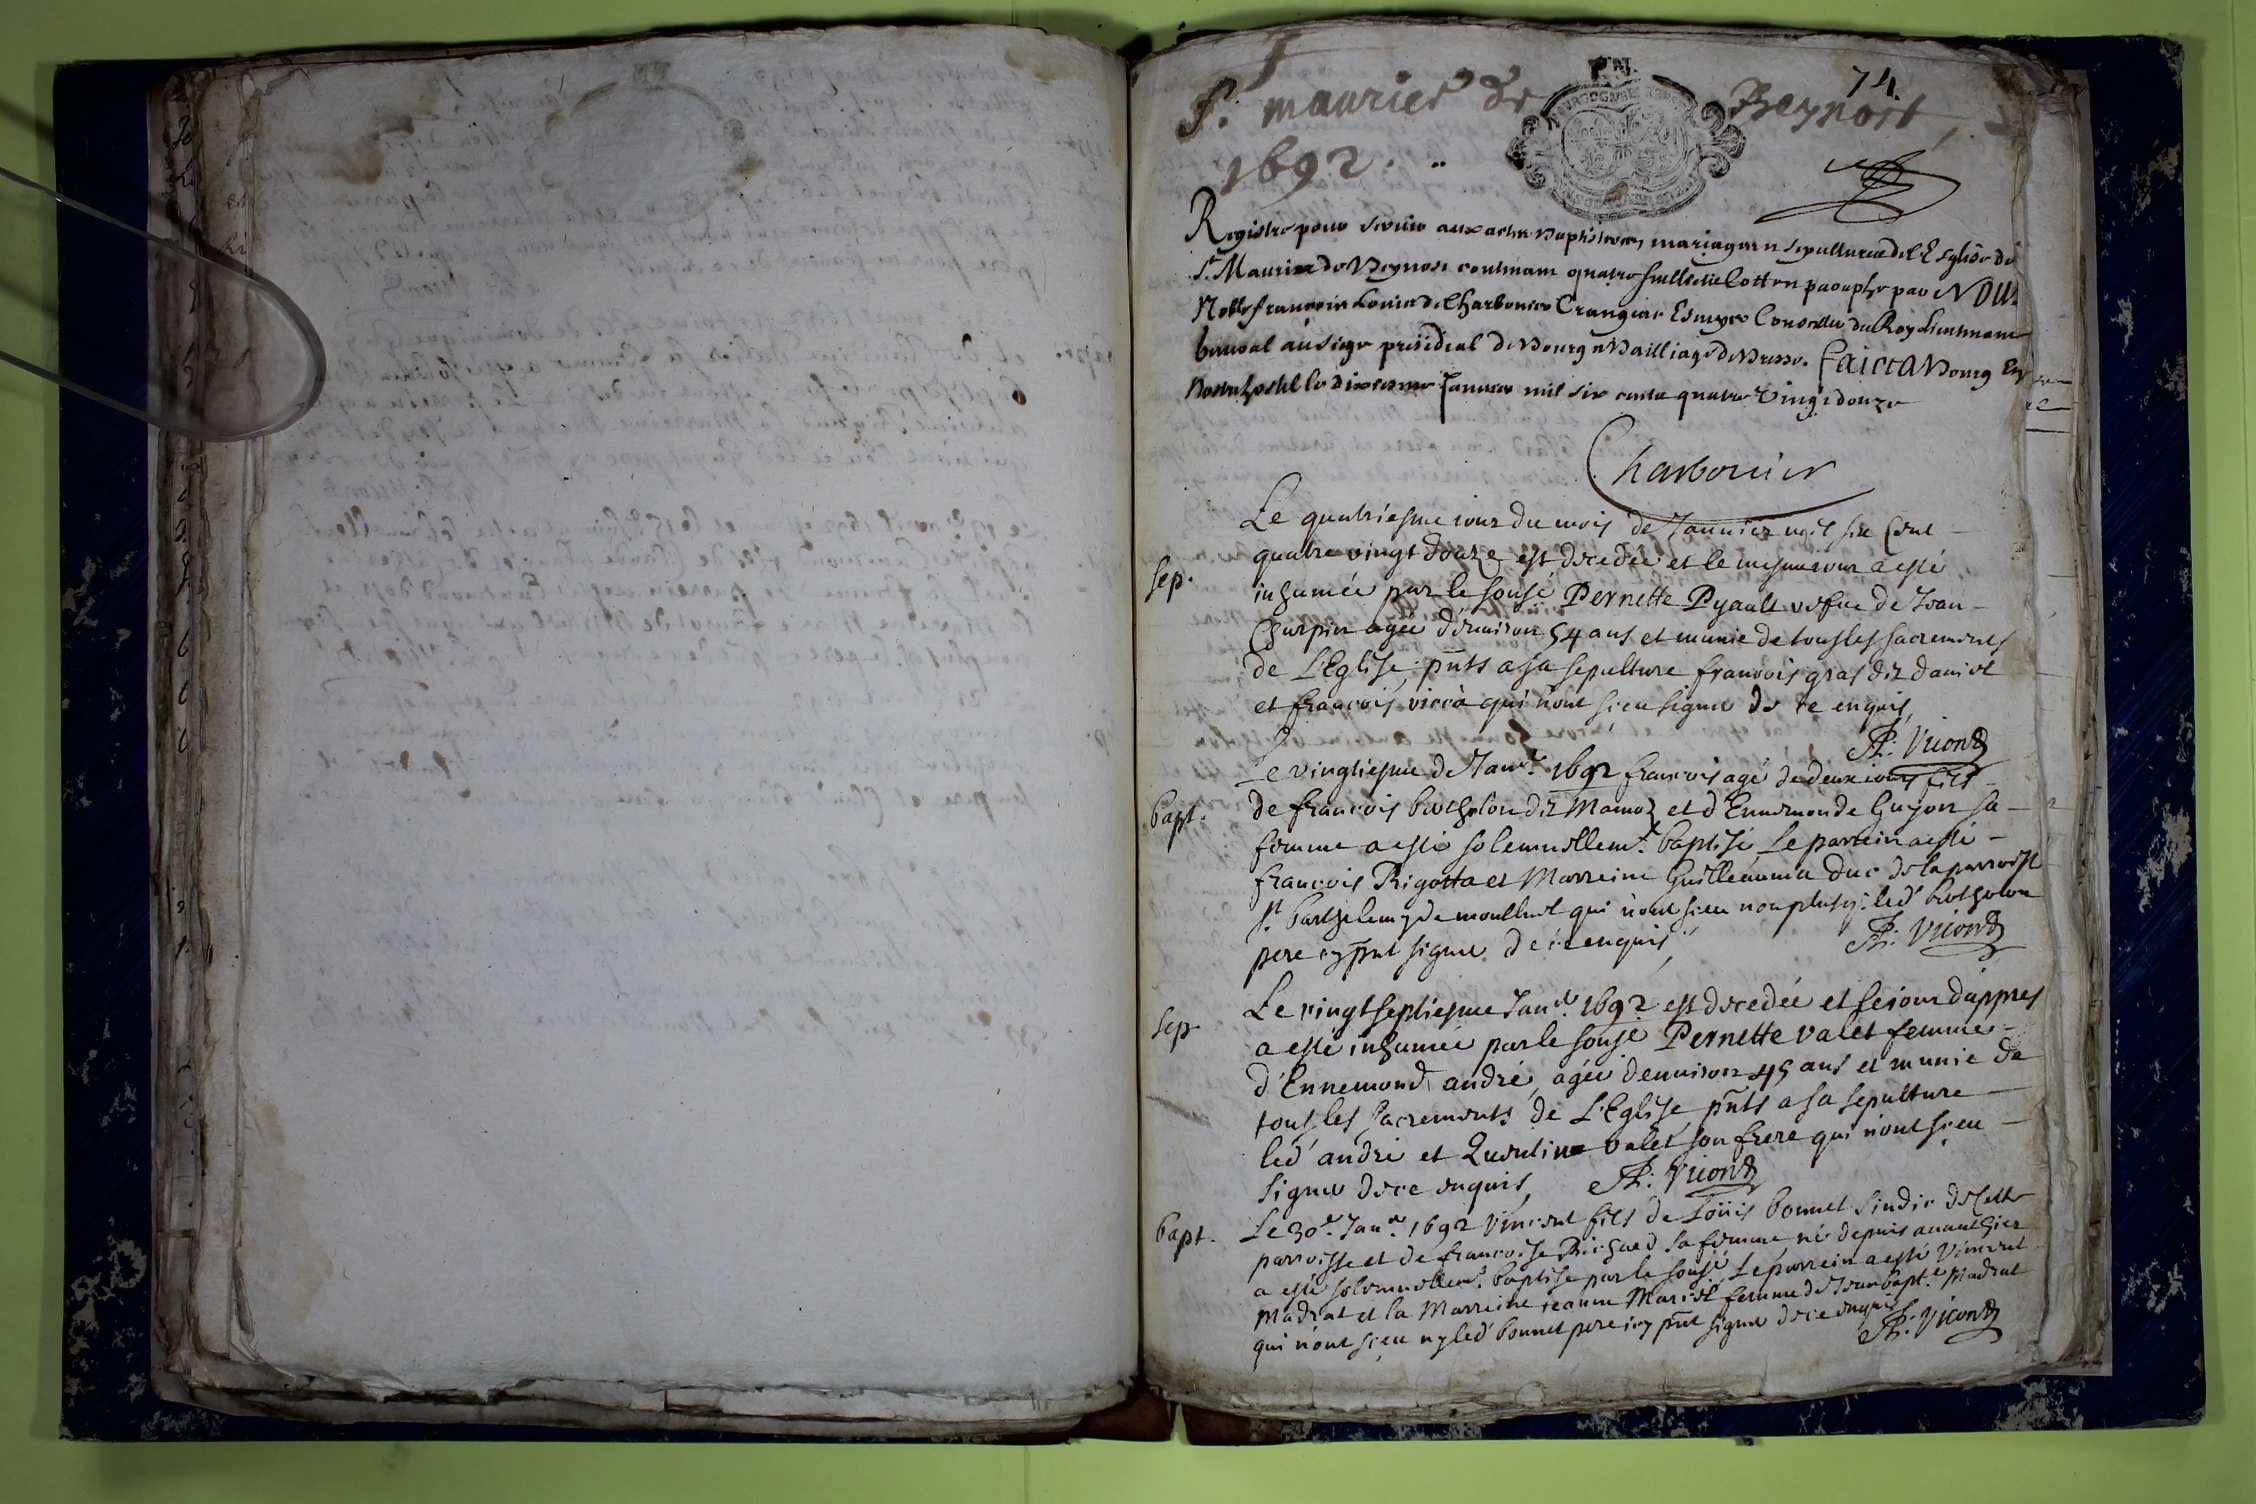 74
St. maurice de Beynost,
1692.
Registre pour servir aux actes Baptistaires, mariages et sepultures de l'Esglise de
St. Maurice de Beynost contenant quatre feuillets cotté et paraphé par Nous
Noble francois Louis de Charbonier Crangiac Escuyer Conseiller du Roy Lieutenant
general au siege presidial de Bourg et Bailliage de Bresse. faict a Bourg En
nostre hostel le Janvier mil six cents quatre vingt douze
Charbonier
Le quatriesme iour du mois de Januier mil six Cent
sep.
quatre vingt douze est decedée et le mesme iour a esté
inhumée par le sousé Pernette Pyault vesue de Jean
Charpin agée d'enuiron 54 ans et munie de tous les sacrements
de L'Eglise, pnts a sa sepulture francois gras dit daniel
et francois qui n'ont sceu signer de ce enquis,
Vicond
Le vingtiesme de Janr. 1692 francois agé de deux iours fils
bapt.
de francois bertholon dit Mamoz et d'Ennemonde Guyon sa
femme a esté solemnellemt. baptisé, Le parrein a esté
francois Rigotta et Marreine Guillauma duc de la parroisse
St. barthelemy de montluel qui n'ont sceu non plus q: led' bertholon
pere icy pnt signer de ce enquis,
Vicond
Le vingtseptiesme Janr. 1692 est decedée et le iour d'appres
sep.
a esté inhumée par le sousé Pernette valet femme
d'Ennemond andré, agée d'enuiron 45 ans et munie de
tous les sacrements de L'Eglise, pnts a sa sepulture
led' andré et Quentin valet son frere qui n'ont sceu
signer de ce enquis,
Vicond
bapt.
Le 30e. Janr. 1692 vincent fils de Loüis bonnet sindic de cette
parroisse et de francoise Richard sa femme né depuis auanthier
a esté solemnellemt. baptisé par le sousé, Le parrein a esté Vincent
Madrat et la Marreine ieanne Mariet femme de Jean bapt.e Madrat
qui n'ont sceu ny led' bonnet pere icy pnt signer de ce enquis
Vicond